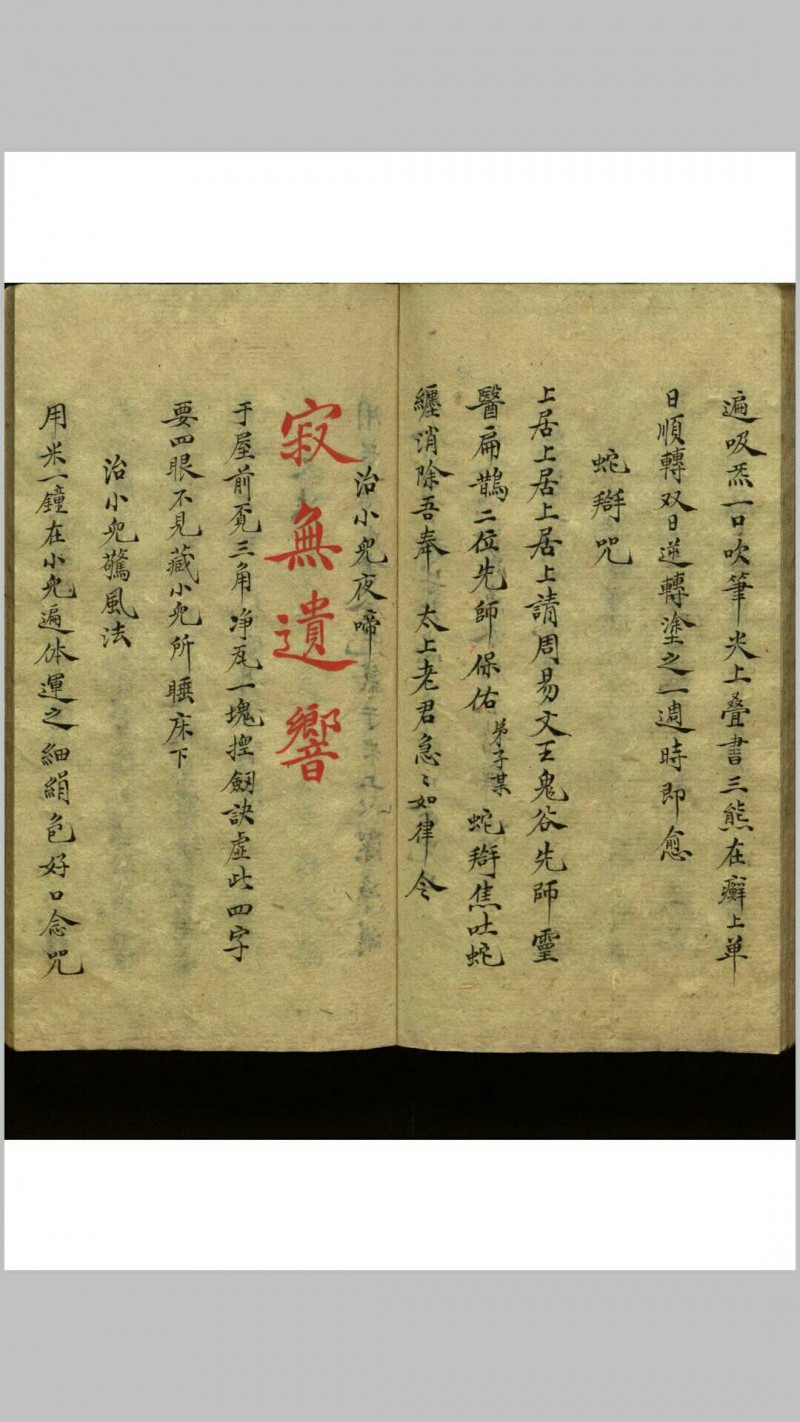 遍吸炁一口吹筆尖上叠書三熊在癬上单
日順轉双日逆轉塗之一週時即愈
蛇辮咒
上居上居上居上請周易文王鬼谷先師靈
醫扁鵲二位先師保佑弟子某蛇辮焦吐蛇
纏消除吾奉太上老君急〻如律令
治小兒夜啼
寂無遺響
于屋前覓三角净瓦一塊揑劔訣虛此四字
要四眼不見藏小兒所睡床下
治小兒驚風法
用米一鐘在小兒遍体運之細絹包好口念咒